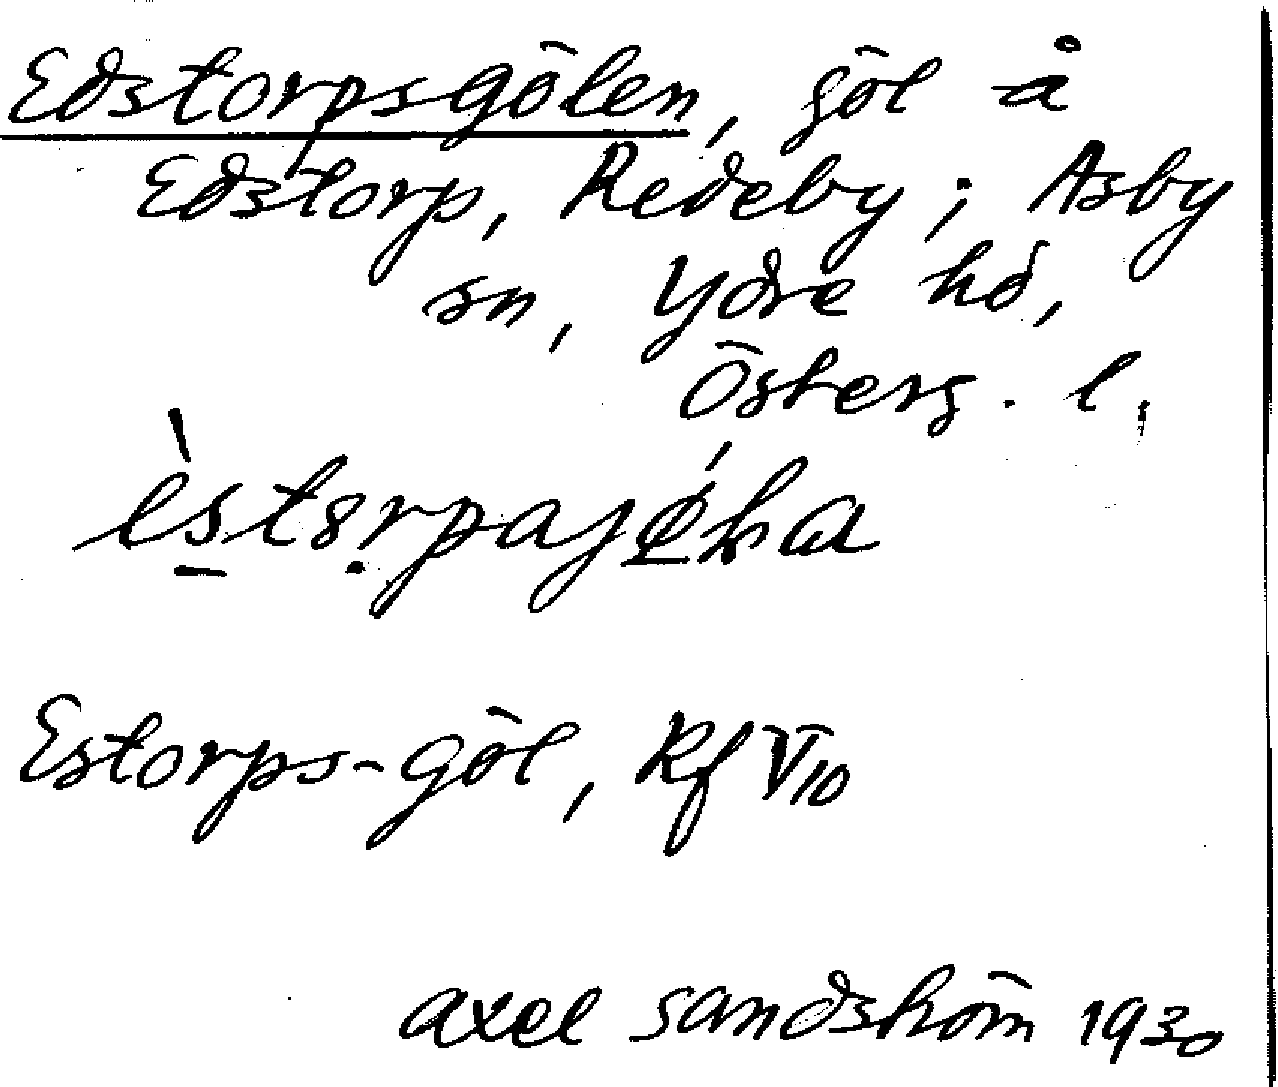 Edstorpsgölen, göl å
Edstorp, Redeby; Asby
sn, Ydre hd,
Österg. l.
Estorps-göl, Rf V/10
axel sandström 1930